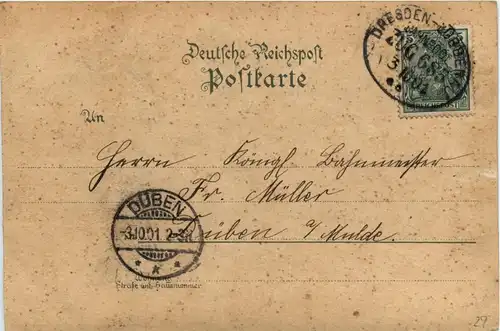 Deutsche Reichspost
Postkarte
DRESDEN-
ZUG 683
An
Herrn Königl. Bahnmeister
Fr. Müller
Düben a/Mulde.
DÜBEN
3.10.01 2-3N
* *
Straße und Hausnummer
27